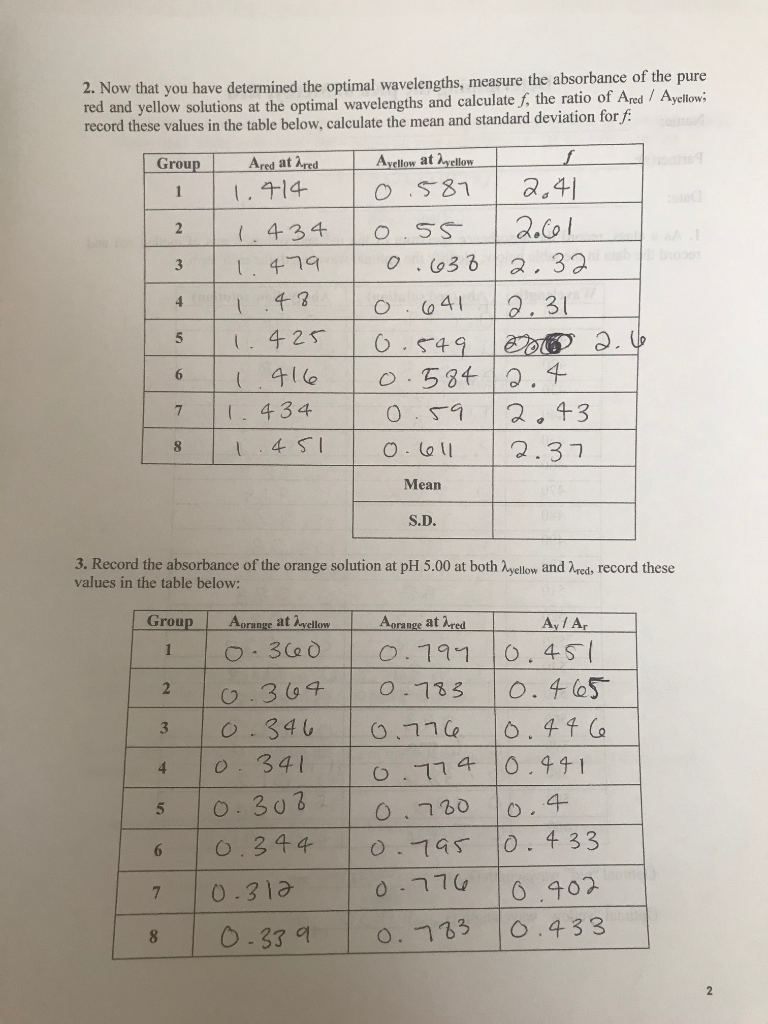 2. Now that you have determined the optimal wavelengths, measure the absorbance of the pure
red and yellow solutions at the optimal wavelengths and calculate f, the ratio of Ared / Ayellow;
record these values in the table below, calculate the mean and standard deviation for f:
Group Ared at λred Ayellow at λyellow f
1 1.414 0.587 2.41
2 1.434 0.55 2.61
3 1.479 0.638 2.32
4 1.48 0.641 2.31
5 1.425 0.549 2.6
6 1.416 0.584 2.4
7 1.434 0.59 2.43
8 1.451 0.611 2.37
Mean
S.D.
3. Record the absorbance of the orange solution at pH 5.00 at both λyellow and λred, record these
values in the table below:
Group Aorange at λyellow Aorange at λred Ay / Ar
1 0.360 0.797 0.451
2 0.364 0.783 0.465
3 0.346 0.776 0.446
4 0.341 0.774 0.441
5 0.308 0.780 0.4
6 0.344 0.795 0.433
7 0.312 0.776 0.402
8 0.339 0.783 0.433
2